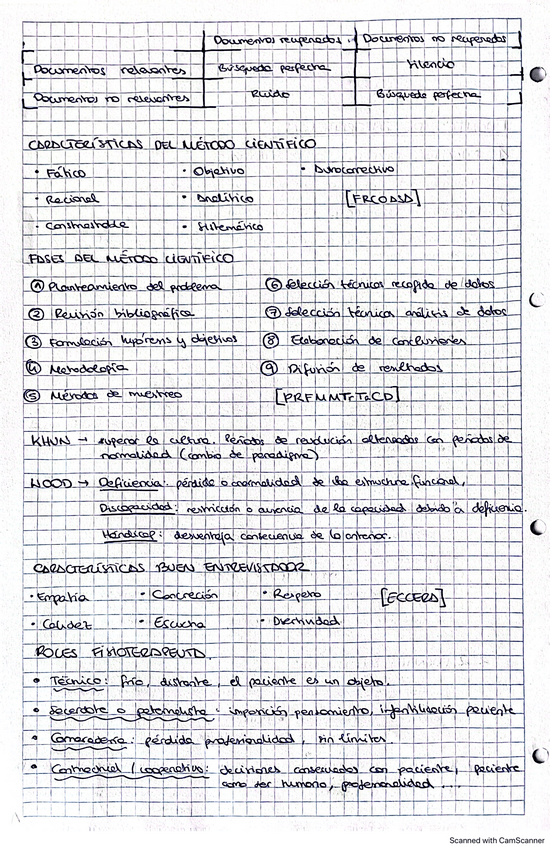 Documentos recuperados Documentos no recuperados
Documentos relevantes Búsqueda perfecta Silencio
Documentos no relevantes Ruido Búsqueda perfecta
CARACTERÍSTICAS DEL MÉTODO CIENTÍFICO
• Fático • Objetivo • Autocorrectivo
• Racional • Analítico [FRCOASA]
• Contrastable • Sistemático
FASES DEL MÉTODO CIENTÍFICO
① Planteamiento del problema ⑥ Selección técnicas recogida de datos
② Revisión bibliográfica ⑦ Selección técnicas análisis de datos
③ Formulación hipótesis y objetivos ⑧ Elaboración de conclusiones
④ Metodología ⑨ Difusión de resultados
⑤ Métodos de muestreo [PRFMMTrTaCD]
KHUN → superar la cultura. Periodos de revolución alternados con periodos de
normalidad (cambio de paradigma)
WOOD → Deficiencia: pérdida o anormalidad de una estructura, funcional,
Discapacidad: restricción o ausencia de la capacidad debido a deficiencia.
Hándicap: desventaja consecuencia de lo anterior.
CARACTERÍSTICAS BUEN ENTREVISTADOR
• Empatía • Concreción • Respeto [ECCERA]
• Calidez • Escucha • Asertividad
ROLES FISIOTERAPEUTA.
• Técnico: frío, distante, el paciente es un objeto.
• Sacerdote o paternalista: imposición pensamiento, infantilización paciente
• Camaradería: pérdida profesionalidad, sin límites.
• Contractual / cooperativo: decisiones consensuadas con paciente, paciente
como ser humano, profesionalidad ...
Scanned with CamScanner